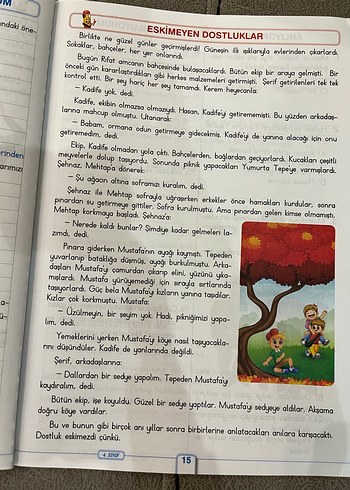 ESKİMEYEN DOSTLUKLAR
Birlikte ne güzel günler geçirmişlerdi! Güneşin ilk ışıklarıyla evlerinden çıkarlardı.
Sokaklar, bahçeler, her yer onlarındı.
Bugün Rıfat amcanın bahçesinde buluşacaklardı. Bütün ekip bir araya gelmişti. Bir
önceki gün kararlaştırdıkları gibi herkes malzemeleri getirmişti. Şerif getirilenleri tek tek
kontrol etti. Bir şey hariç her şey tamamdı. Kerem heyecanla:
– Kadife yok, dedi.
Kadife, ekibin olmazsa olmazıydı. Hasan, Kadife'yi getirememişti. Bu yüzden arkadaş-
larına mahcup olmuştu. Utanarak:
– Babam, ormana odun getirmeye gidecekmiş. Kadife'yi de yanına alacağı için onu
getiremedim, dedi.
Ekip, Kadife olmadan yola çıktı. Bahçelerden, bağlardan geçiyorlardı. Kucakları çeşitli
meyvelerle dolup taşıyordu. Sonunda piknik yapacakları Yumurta Tepe'ye varmışlardı.
Şehnaz, Mehtap'a dönerek:
– Şu ağacın altına soframızı kuralım, dedi.
Şehnaz ile Mehtap sofrayla uğraşırken erkekler önce hamakları kurdular, sonra
pınardan su getirmeye gittiler. Sofra kurulmuştu. Ama pınardan gelen kimse olmamıştı.
Mehtap korkmaya başladı. Şehnaz'a:
– Nerede kaldı bunlar? Şimdiye kadar gelmeleri la-
zımdı, dedi.
Pınara giderken Mustafa'nın ayağı kaymıştı. Tepeden
yuvarlanıp bataklığa düşmüş, ayağı burkulmuştu. Arka-
daşları Mustafa'yı çamurdan çıkarıp elini, yüzünü yıka-
mışlardı. Mustafa yürüyemediği için sırayla sırtlarında
taşıyorlardı. Güç bela Mustafa'yı kızların yanına taşıdılar.
Kızlar çok korkmuştu. Mustafa:
– Üzülmeyin, bir şeyim yok. Hadi, pikniğimizi yapa-
lım, dedi.
Yemeklerini yerken Mustafa'yı köye nasıl taşıyacakla-
rını düşündüler. Kadife de yanlarında değildi.
Şerif, arkadaşlarına:
– Dallardan bir sedye yapalım. Tepeden Mustafa'yı
kaydıralım, dedi.
Bütün ekip, işe koyuldu. Güzel bir sedye yaptılar. Mustafa'yı sedyeye aldılar. Akşama
doğru köye vardılar.
Bu ve bunun gibi birçok anı yıllar sonra birbirlerine anlatacakları anılara karışacaktı.
Dostluk eskimezdi çünkü.
4. SINIF
15